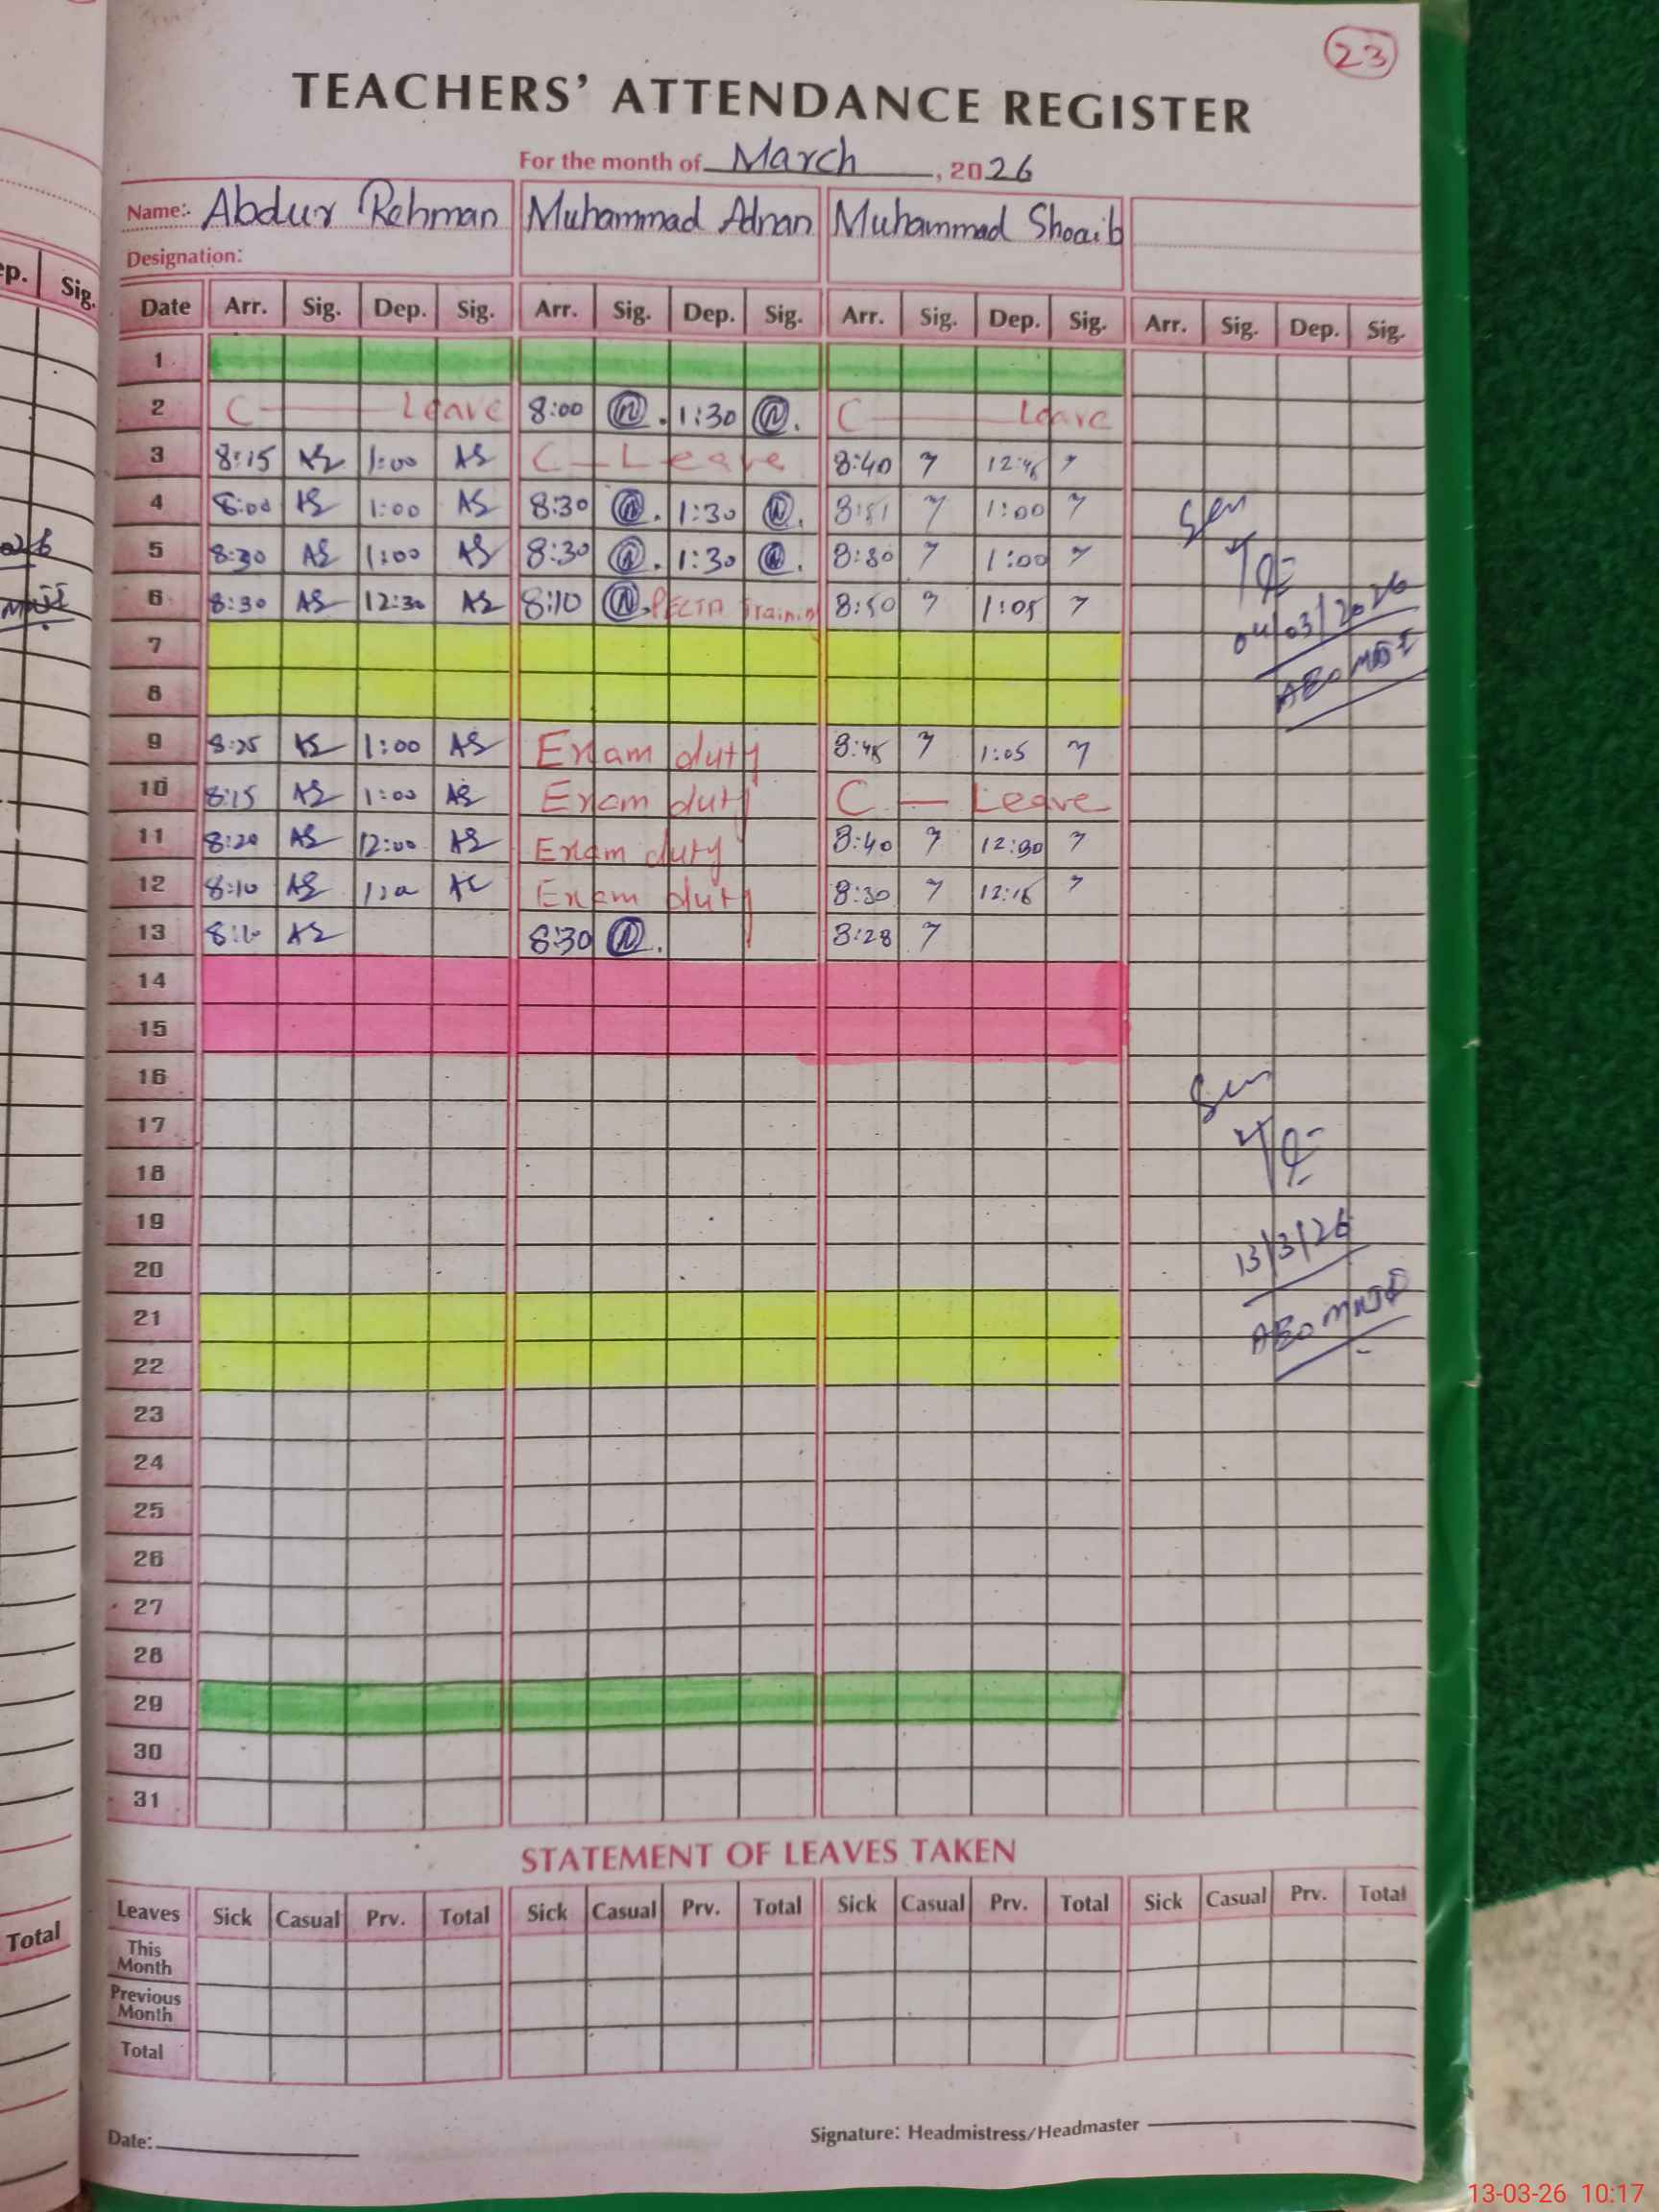 23
TEACHERS' ATTENDANCE REGISTER
For the month of March, 2026
Name:- Abdur Rehman Muhammad Adnan Muhammad Shoaib
Designation:
Date Arr. Sig. Dep. Sig. Arr. Sig. Dep. Sig. Arr. Sig. Dep. Sig. Arr. Sig. Dep. Sig.
1
2 C Leave 8:00 1:30 C Leave
3 8:15 AS 1:00 AS C - Leave 8:40 12:46
4 8:00 AS 1:00 AS 8:30 1:30 8:51 1:00
5 8:30 AS 1:00 AS 8:30 1:30 8:30 1:00
6 8:30 AS 12:30 AS 8:10 PECTA Training 8:50 1:05
04/03/2026
7
8
9 8:25 AS 1:00 AS Exam duty 8:45 1:05
10 8:15 AS 1:00 AS Exam duty C - Leave
11 8:20 AS 12:00 AS Exam duty 8:40 12:30
12 8:10 AS Exam duty 8:30 12:16
13 8:10 AS 8:30 8:28
14
15
16
17
18
19
13/3/26
20
21
22
23
24
25
26
27
28
29
30
31
STATEMENT OF LEAVES TAKEN
Leaves Sick Casual Prv. Total Sick Casual Prv. Total Sick Casual Prv. Total Sick Casual Prv. Total
This Month
Previous Month
Total
Date:
Signature: Headmistress/Headmaster
ep. Sig.
Total
13-03-26 10:17